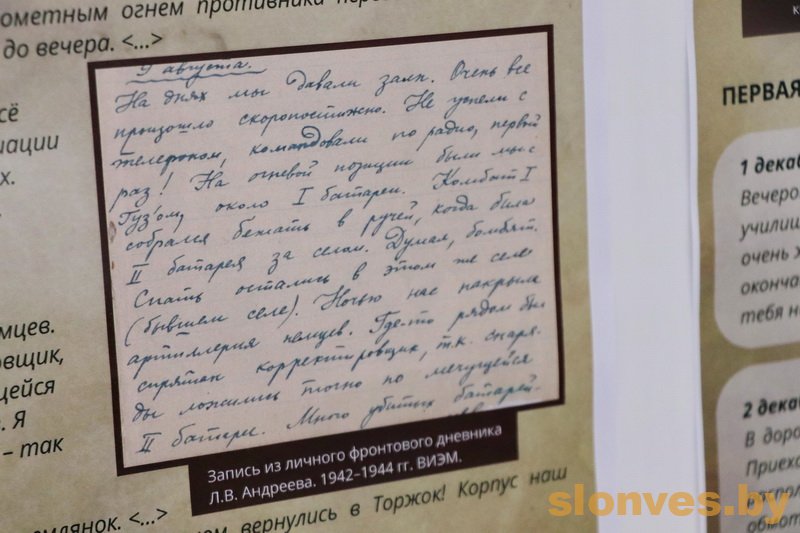 ометным огнем противника
до вечера. <...>
сё
иации
х.
мцев.
овщик,
щейся
. Я
– так
9 августа.
На днях мы давали залп. Очень все
произошло скоропостижно. Не успели с
телефоном, командовали по радио, первый
раз! На огневой позиции были мы с
Гуз'ом, около I батареи. Комбат I
собрался бежать в ручей, когда била
II батарея за селом. Думал, бомбят.
Спать остались в этом же селе
(бывшем селе). Ночью нас накрыла
артиллерия немцев. Где-то рядом был
спрятан корректировщик, т.к. снаря-
ды ложились точно по мечущейся
II батареи. Много убитых батарей-
Запись из личного фронтового дневника
Л.В. Андреева. 1942–1944 гг. ВИЭМ.
млянок. <...>
ом вернулись в Торжок! Корпус наш
ПЕРВАЯ
1 декаб
Вечеро
училищ
очень х
оконча
тебя н
2 дека
В доро
Приеха
обмот
slonves.by